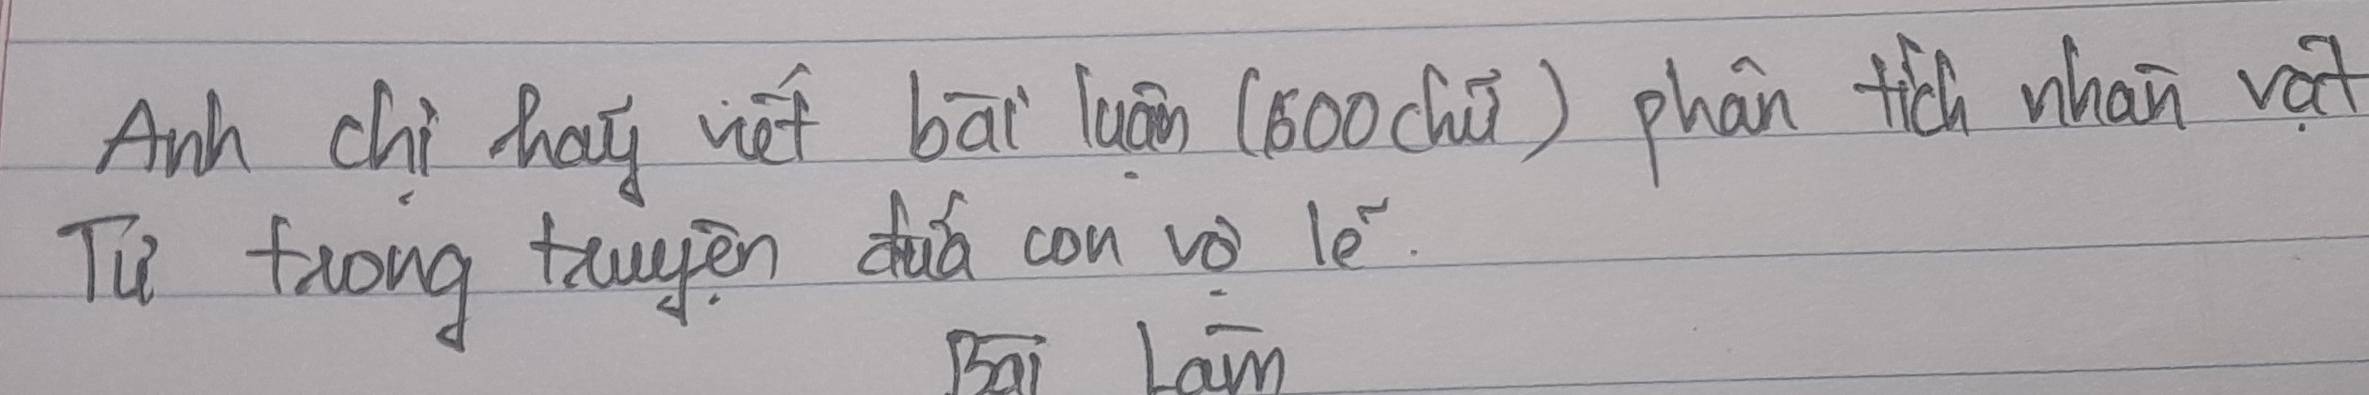 Anh chị hãy viết bài luận (600 chữ) phân tích nhân vật
Tư trong truyện đứa con vợ lẽ.
Bài Làm